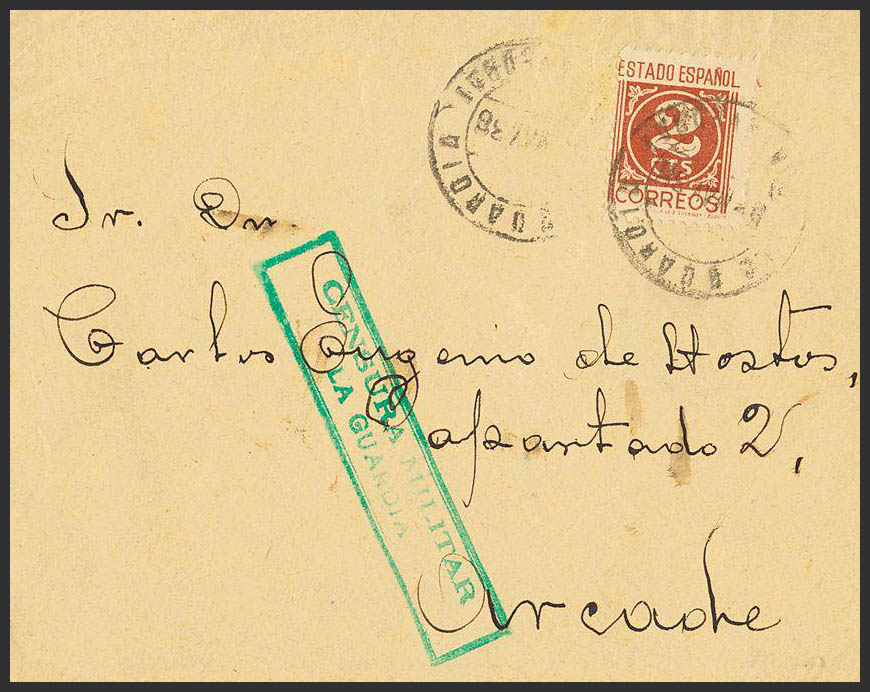 ESTADO ESPAÑOL
2
CTS
CORREOS
GUARDIA
LA GUARDIA
Sr. Dn.
Carlos Eugenio de Hostos,
Apartado 2,
Arcade
CENSURA MILITAR
LA GUARDIA